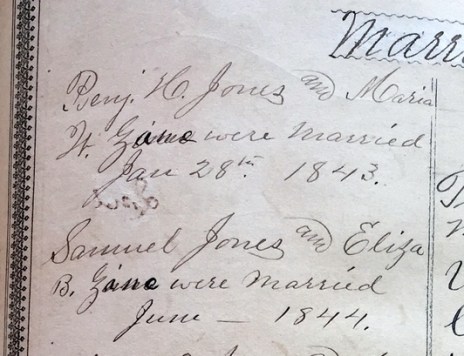 Marri
Benj. H. Jones and Maria
W. Zane were Married
Jan 28th 1843.
Samuel Jones and Eliza
B. Zane were Married
June — 1844.